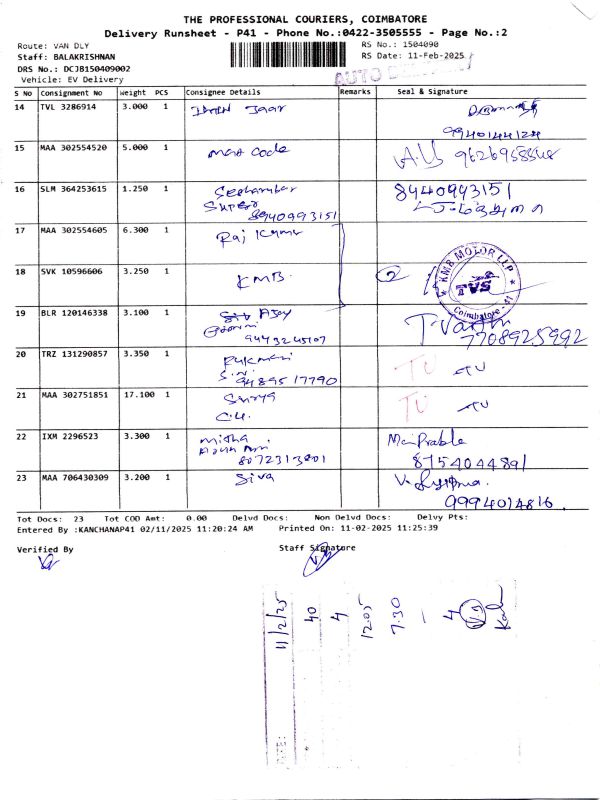 THE PROFESSIONAL COURIERS, COIMBATORE
Delivery Runsheet - P41 - Phone No.:0422-3505555 - Page No.:2
Route: VAN DLY
RS No.: 1504090
Staff: BALAKRISHNAN
RS Date: 11-Feb-2025
DRS No.: DCJB150409002
Vehicle: EV Delivery
AUTO
S NO Consignment No Weight PCS Consignee Details Remarks Seal & Signature
14 TVL 3286914 3.000 1
9940144124
15 MAA 302554520 5.000 1 max code A.U 9626955548
16 SLM 364253615 1.250 1
Super
8940993151
8940993151
17 MAA 302554605 6.300 1 Raj Kumar
18 SVK 10596606 3.250 1 KMB 2
KMB MOTOR LLP
TVS
Coimbatore - 41
19 BLR 120146338 3.100 1 Ajay
9443245107
7708925992
20 TRZ 131290857 3.350 1 Rukmani
S.N.
9489517790
TU TU
21 MAA 302751851 17.100 1 Surya
C.H.
TU TU
22 IXM 2296523 3.300 1
8072313801
8754044891
23 MAA 706430309 3.200 1 Siva
9994014816
Tot Docs: 23 Tot COD Amt: 0.00 Delvd Docs: Non Delvd Docs: Delvy Pts:
Entered By :KANCHANAP41 02/11/2025 11:20:24 AM Printed On: 11-02-2025 11:25:39
Verified By
Staff Signature
11/2/25
40
4
12.05
7.30
4